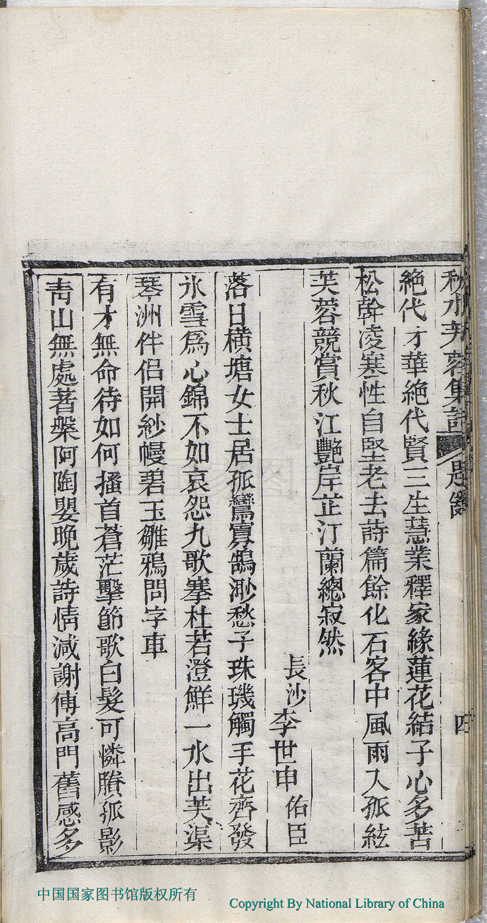 秋水芙蓉集
四
絶代才華絶代賢三生慧業釋家緣蓮花結子心多苦
松幹凌寒性自堅老去詩篇餘化石客中風雨入孤絃
芙蓉競賞秋江艷岸芷汀蘭總寂然
長沙李世申佑臣
落日橫塘女士居孤鸞寡鵠渺愁子珠璣觸手花齊發
氷雪爲心錦不如哀怨九歌搴杜若澄鮮一水出芙渠
琴洲伴侶開紗幔碧玉雛鴉問字車
有才無命待如何搔首蒼茫擊節歌白髮可憐賸孤影
靑山無處著槃阿陶嬰晚歲詩情減謝傅高門舊感多
中国国家图书馆版权所有
Copyright By National Library of China